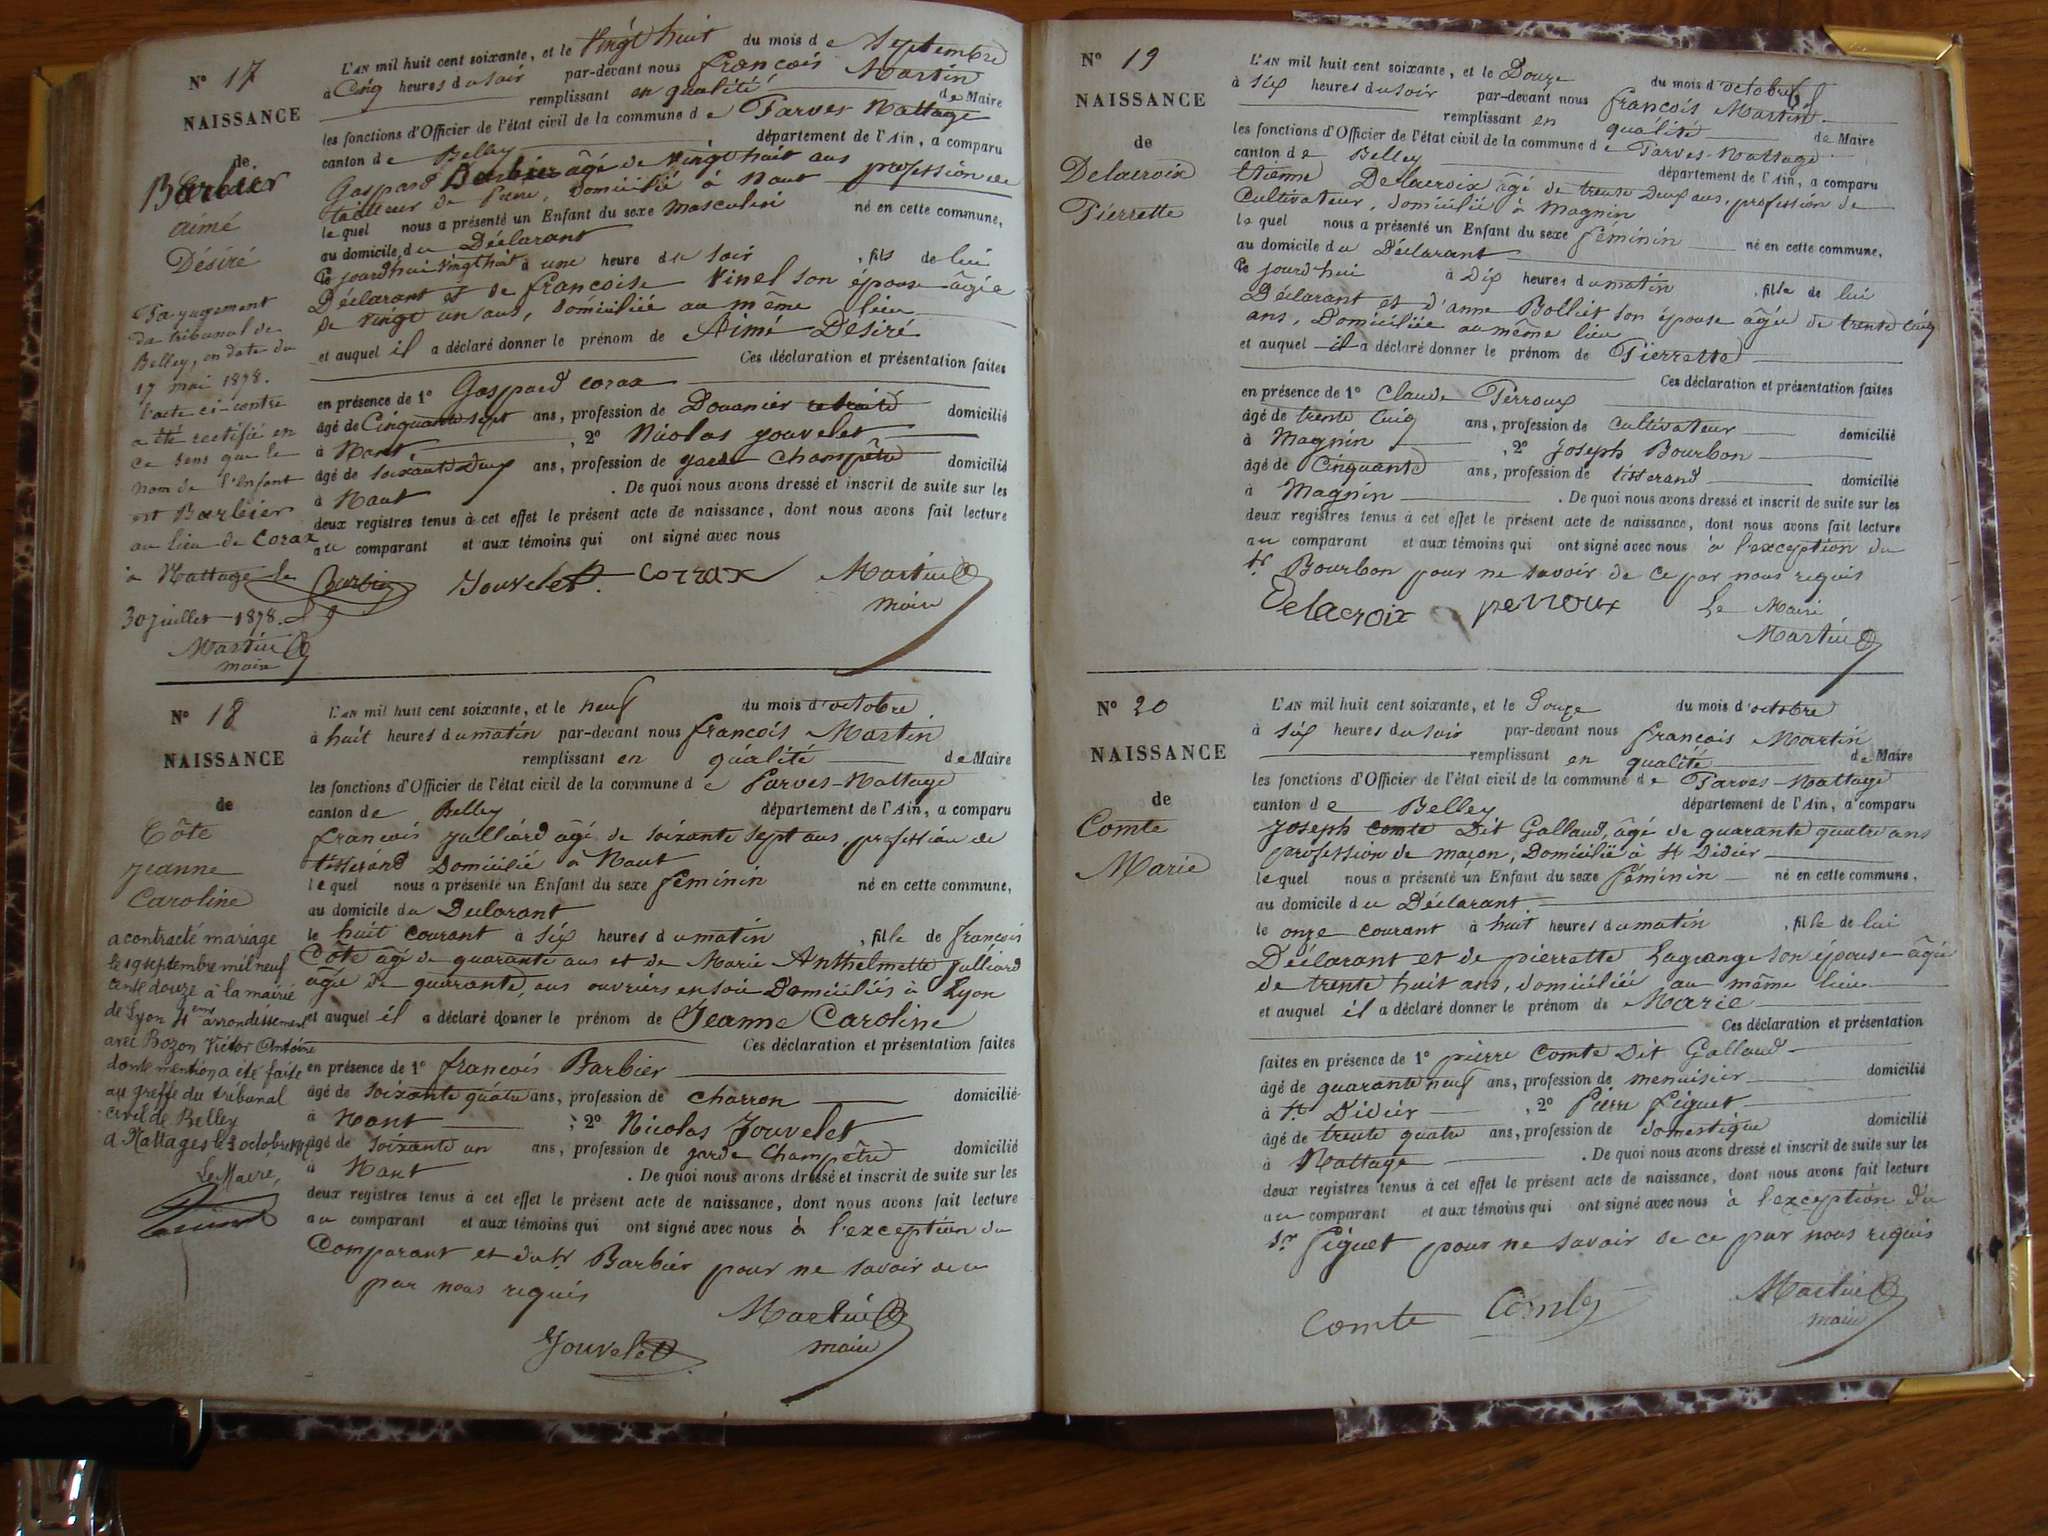 N° 17
NAISSANCE
de
Barbier
aimé
Désiré
Par jugement
du tribunal de
Belley, en date du
17 mai 1878.
l'acte ci-contre
a été rectifié en
ce sens que le
nom de l'enfant
est Barbier
au lieu de Corax
à Nattage le
30 juillet 1878.
Martin
maire
L'AN mil huit cent soixante, et le vingt huit du mois de Septembre
à Cinq heures du soir par-devant nous françois Martin
remplissant en qualité de Maire
les fonctions d'Officier de l'état civil de la commune de Parves Nattage
canton de Belley département de l'Ain, a comparu
Gaspard Barbier âgé de vingt huit ans profession de
tailleur de Pierre, domicilié à Nant
lequel nous a présenté un Enfant du sexe masculin né en cette commune,
au domicile du Déclarant
Ce jourd'hui vingt huit à une heure du soir , fils de lui
Déclarant et de françoise Vinel son épouse âgée
de vingt un ans, domiciliée au même lieu
et auquel il a déclaré donner le prénom de Aimé Désiré
Ces déclaration et présentation faites
en présence de 1° Gaspard corax
âgé de Cinquante sept ans, profession de Douanier retraité domicilié
à Nant , 2° Nicolas jouvelet
âgé de soixante deux ans, profession de garde Champêtre domicilié
à Nant . De quoi nous avons dressé et inscrit de suite sur les
deux registres tenus à cet effet le présent acte de naissance, dont nous avons fait lecture
au comparant et aux témoins qui ont signé avec nous
Barbier Jouvelet corrax Martin
maire
N° 18
NAISSANCE
de
Côte
jeanne
Caroline
a contracté mariage
le 19 septembre mil neuf
cent douze à la mairie
de Lyon 4eme arrondissement
avec Bozon Victor Antoine
dont mention a été faite
au greffe du tribunal
civil de Belley
à Nattages le 3 octobre
Le Maire,
L'AN mil huit cent soixante, et le neuf du mois d'octobre
à huit heures du matin par-devant nous françois Martin
remplissant en qualité de Maire
les fonctions d'Officier de l'état civil de la commune de Parves-Nattage
canton de Belley département de l'Ain, a comparu
françois Julliard âgé de soixante sept ans, profession de
tisserand Domicilié à Nant
lequel nous a présenté un Enfant du sexe féminin né en cette commune,
au domicile du Déclarant
le huit courant à six heures du matin , fille de françois
Côte âgé de quarante ans et de Marie Anthelmette Julliard
âgée de quarante, ans ouvriers en soie Domiciliés à Lyon
et auquel il a déclaré donner le prénom de Jeanne Caroline
Ces déclaration et présentation faites
en présence de 1° françois Barbier
âgé de soixante quatre ans, profession de charron domicilié
à Nant ; 2° Nicolas Jouvelet
âgé de soixante un ans, profession de garde Champêtre domicilié
à Nant . De quoi nous avons dressé et inscrit de suite sur les
deux registres tenus à cet effet le présent acte de naissance, dont nous avons fait lecture
au comparant et aux témoins qui ont signé avec nous à l'exception du
Comparant et du sr Barbier pour ne savoir de ce
par nous requis
Jouvelet Martin
maire
N° 19
NAISSANCE
de
Delacroix
Pierrette
L'AN mil huit cent soixante, et le Douze du mois d'octobre
à six heures du soir par-devant nous françois Martin
remplissant en qualité de Maire
les fonctions d'Officier de l'état civil de la commune de Parves-Nattage
canton de Belley département de l'Ain, a comparu
Etienne Delacroix âgé de trente deux ans, profession de
Cultivateur, domicilié à Magnin
lequel nous a présenté un Enfant du sexe féminin né en cette commune,
au domicile du Déclarant
Ce jourd'hui à dix heures du matin , fille de lui
Déclarant et d'anne Bolliet son épouse âgée de trente cinq
ans, Domiciliée au même lieu
et auquel il a déclaré donner le prénom de Pierrette
Ces déclaration et présentation faites
en présence de 1° claude Perroux
âgé de trente cinq ans, profession de cultivateur domicilié
à Magnin , 2° joseph Bourbon
âgé de Cinquante ans, profession de tisserand domicilié
à Magnin . De quoi nous avons dressé et inscrit de suite sur les
deux registres tenus à cet effet le présent acte de naissance, dont nous avons fait lecture
au comparant et aux témoins qui ont signé avec nous à l'exception du
sr Bourbon pour ne savoir de ce par nous requis
Delacroix perroux Le Maire
Martin
N° 20
NAISSANCE
de
Comte
Marie
L'AN mil huit cent soixante, et le Douze du mois d'octobre
à six heures du soir par-devant nous françois Martin
remplissant en qualité de Maire
les fonctions d'Officier de l'état civil de la commune de Parves-Nattage
canton de Belley département de l'Ain, a comparu
joseph comte Dit Galland, âgé de quarante quatre ans
profession de maçon, Domicilié à St Didier
lequel nous a présenté un Enfant du sexe féminin né en cette commune,
au domicile du Déclarant
le onze courant à huit heures du matin , fille de lui
Déclarant et de pierrette Lagrange son épouse âgée
de trente huit ans, domiciliée au même lieu
et auquel il a déclaré donner le prénom de Marie
Ces déclaration et présentation
faites en présence de 1° pierre Comte Dit Galland
âgé de quarante neuf ans, profession de menuisier domicilié
à St Didier , 2° Pierre Piguet
âgé de trente quatre ans, profession de domestique domicilié
à Nattage . De quoi nous avons dressé et inscrit de suite sur les
deux registres tenus à cet effet le présent acte de naissance, dont nous avons fait lecture
au comparant et aux témoins qui ont signé avec nous à l'exception du
sr Piguet pour ne savoir de ce par nous requis
Comte Comte Martin
maire